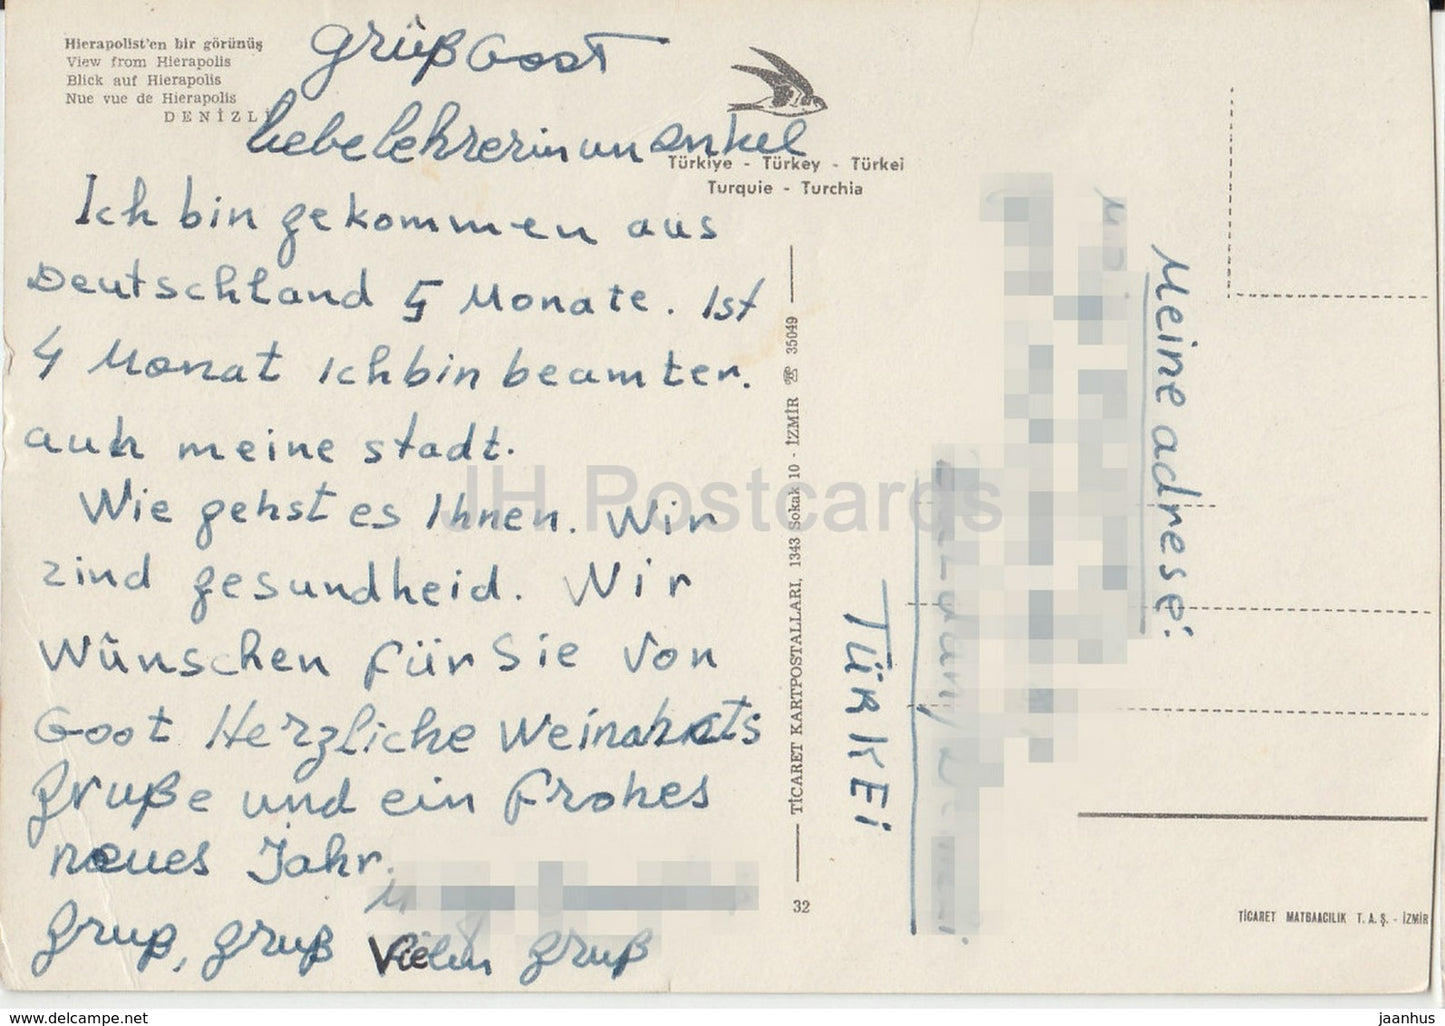 Hierapolist'en bir görünüş
View from Hierapolis
Blick auf Hierapolis
Nue vue de Hierapolis
DENİZLİ
grüß Goot
liebe lehrerin un onkel
Türkiye - Türkey - Türkei
Turquie - Turchia
Ich bin gekommen aus
Deutschland 5 Monate. Ist
4 Monat ich bin beamter.
auh meine stadt.
Wie gehst es Ihnen. Wir
zind gesundheid. Wir
Wünschen für Sie von
Goot Herzliche Weinahcts
gruße und ein frohes
neues Jahr.
gruß, gruß vielen gruß
TİCARET KARTPOSTALLARI, 1343 Sokak 10 - İZMİR ☏ 35049
32
Meine adrese:
TÜRKEi
TİCARET MATBAACILIK T. A. Ş. - İZMİR
JH Postcards
www.delcampe.net
jaanhus